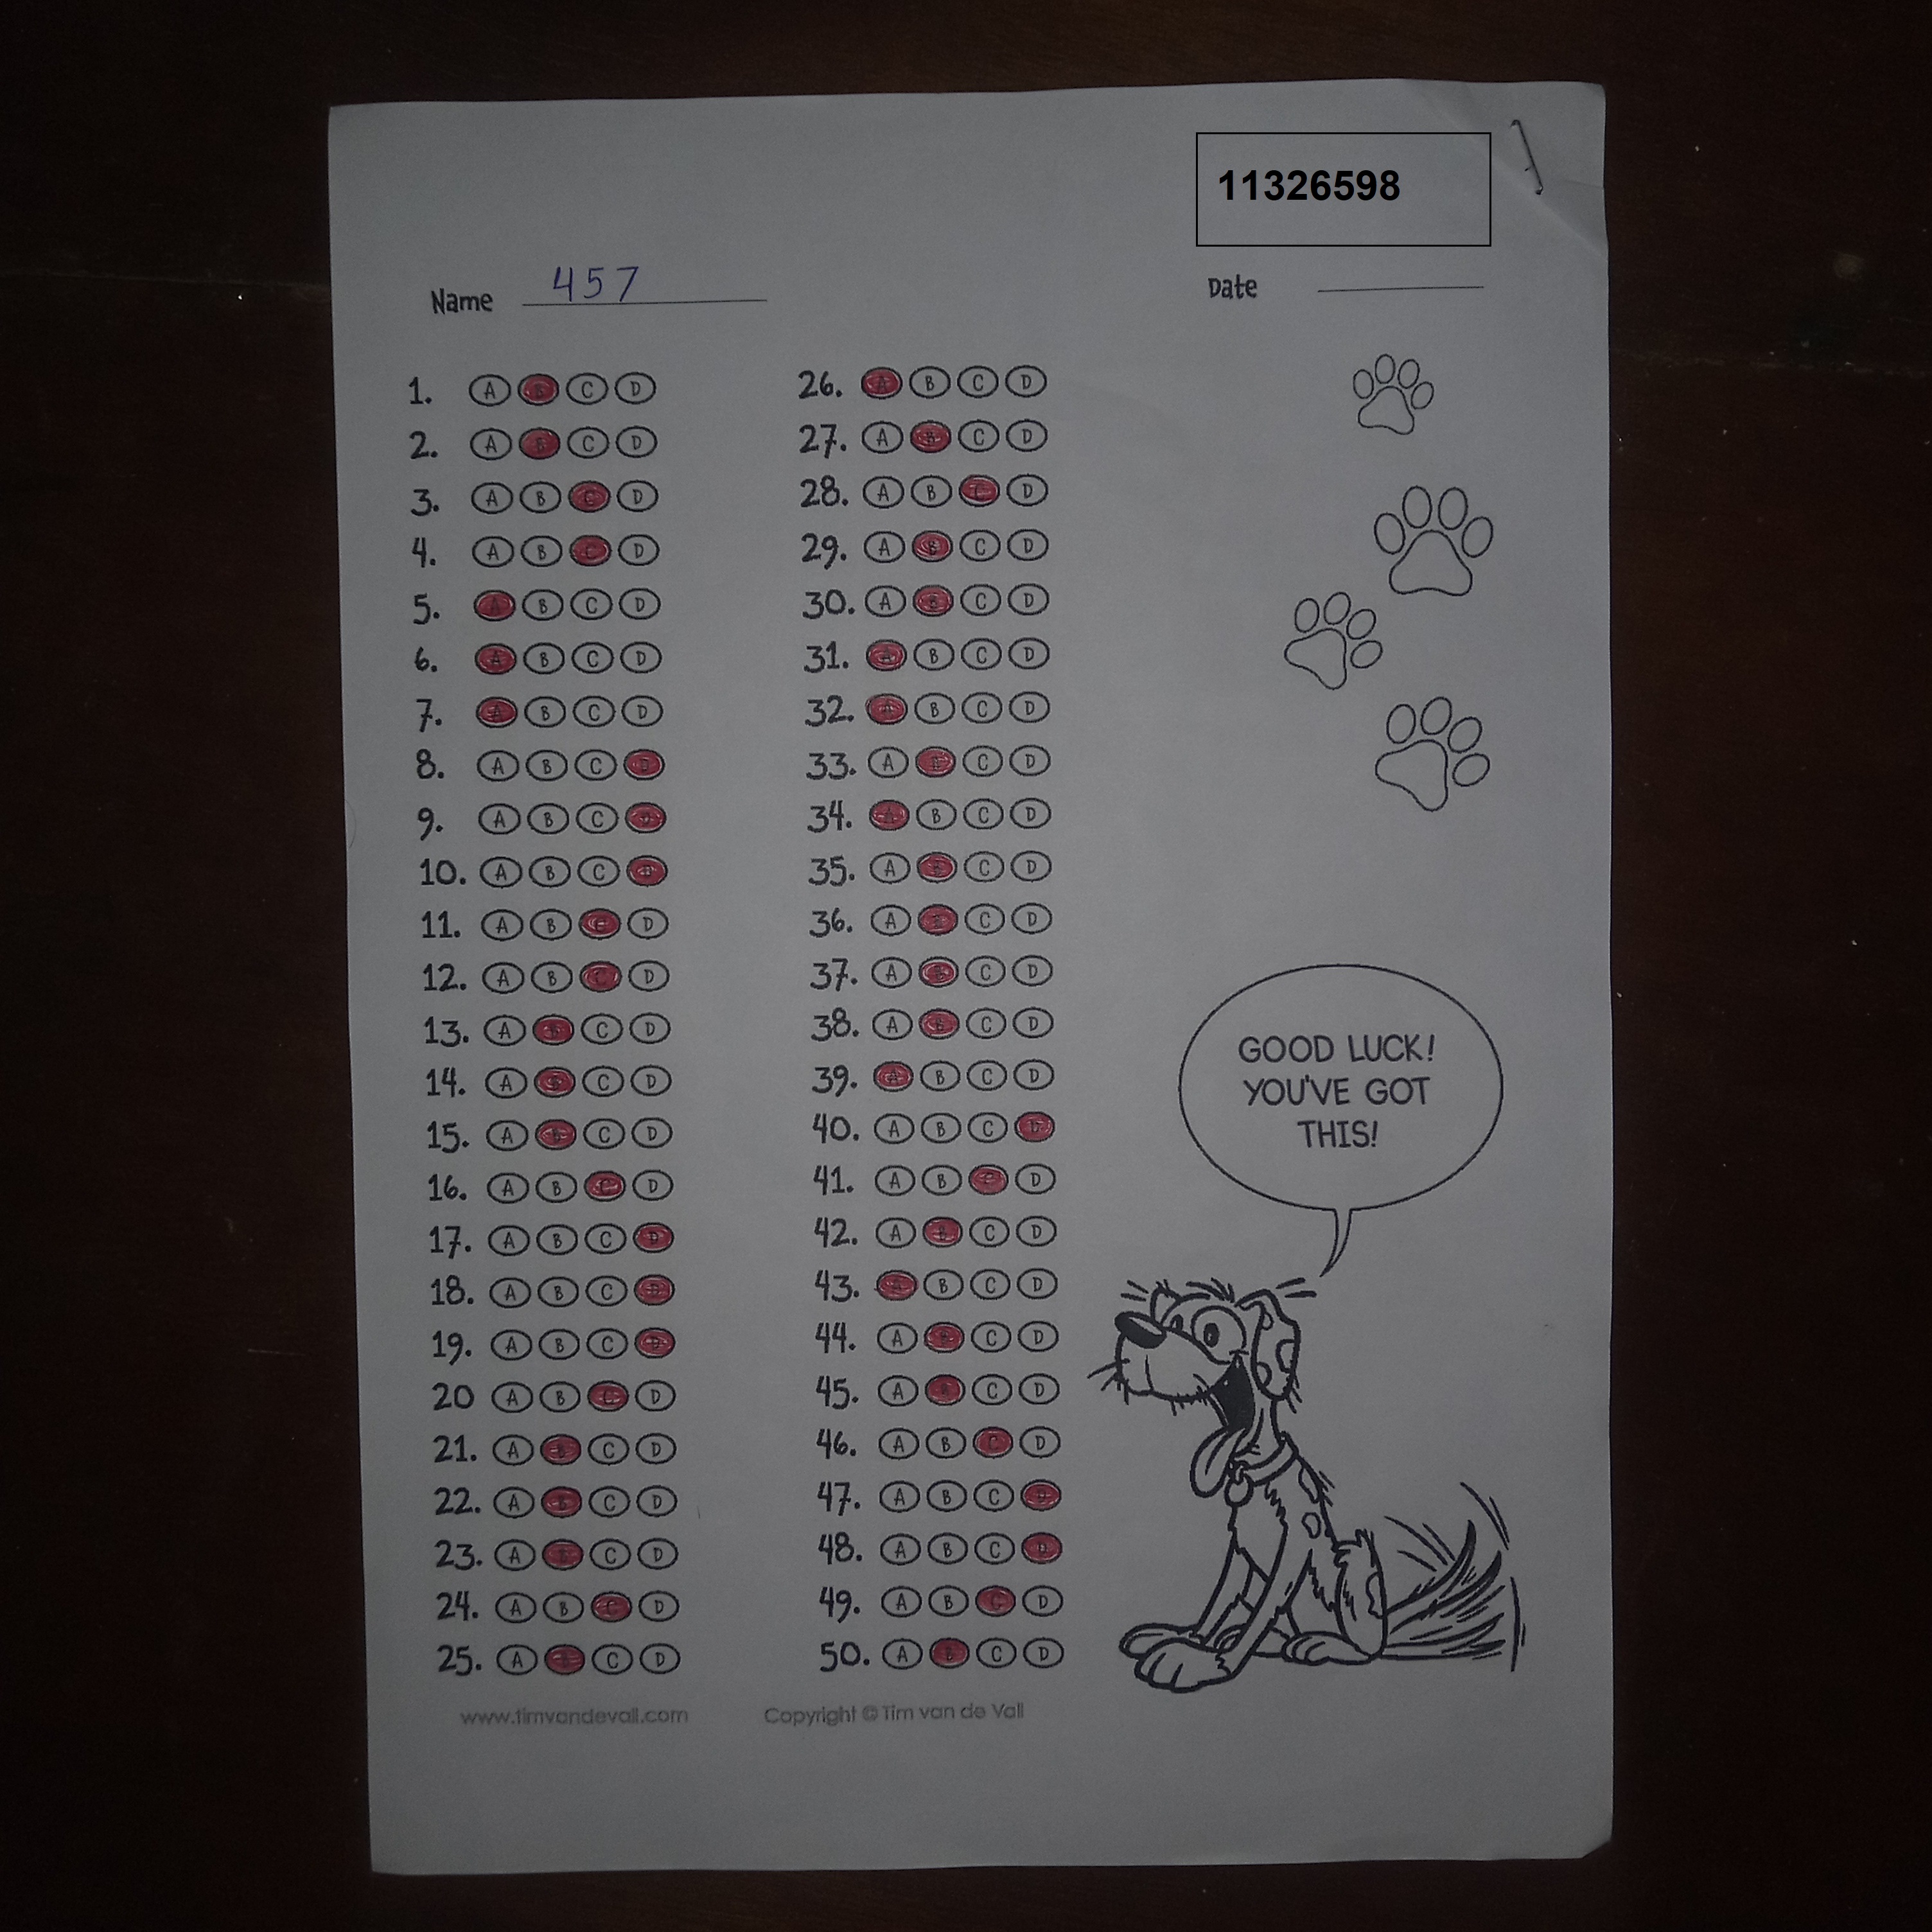 11326598
Name 457 Date
1. A B C D
2. A B C D
3. A B C D
4. A B C D
5. A B C D
6. A B C D
7. A B C D
8. A B C D
9. A B C D
10. A B C D
11. A B C D
12. A B C D
13. A B C D
14. A B C D
15. A B C D
16. A B C D
17. A B C D
18. A B C D
19. A B C D
20 A B C D
21. A B C D
22. A B C D
23. A B C D
24. A B C D
25. A B C D
26. A B C D
27. A B C D
28. A B C D
29. A B C D
30. A B C D
31. A B C D
32. A B C D
33. A B C D
34. A B C D
35. A B C D
36. A B C D
37. A B C D
38. A B C D
39. A B C D
40. A B C D
41. A B C D
42. A B C D
43. A B C D
44. A B C D
45. A B C D
46. A B C D
47. A B C D
48. A B C D
49. A B C D
50. A B C D
GOOD LUCK!
YOU'VE GOT
THIS!
www.timvandevall.com Copyright © Tim van de Vall